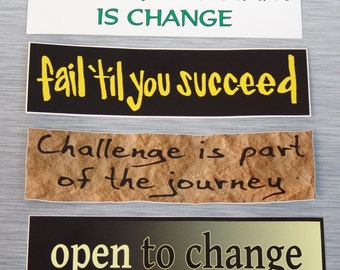 IS CHANGE
fail 'til you succeed
Challenge is part
of the journey
open to change